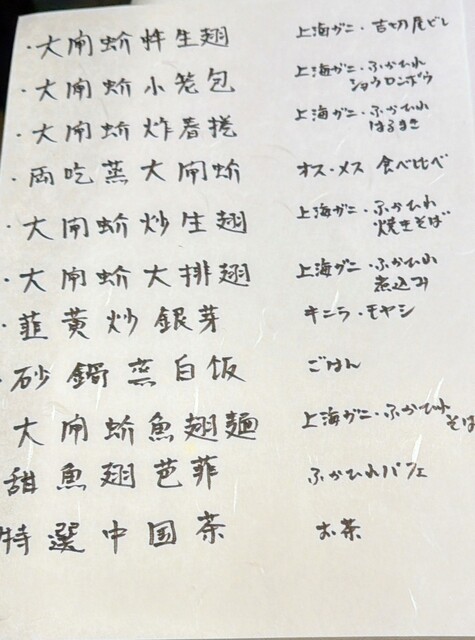 ・大閘蚧拌生翅 上海ガニ・吉切尾ビレ
・大閘蚧小笼包 上海ガニ・ふかひれ
ショウロンポウ
・大閘蚧炸春捲 上海ガニ・ふかひれ
はるまき
・両吃蒸大閘蚧 オス・メス 食べ比べ
・大閘蚧炒生翅 上海ガニ・ふかひれ
焼きそば
・大閘蚧大排翅 上海ガニ・ふかひれ
煮込み
・韮黄炒銀芽 キニラ・モヤシ
・砂鍋蒸白饭 ごはん
大閘蚧魚翅麵 上海ガニ・ふかひれ
そば
甜魚翅芭菲 ふかひれパフェ
特選中国茶 お茶